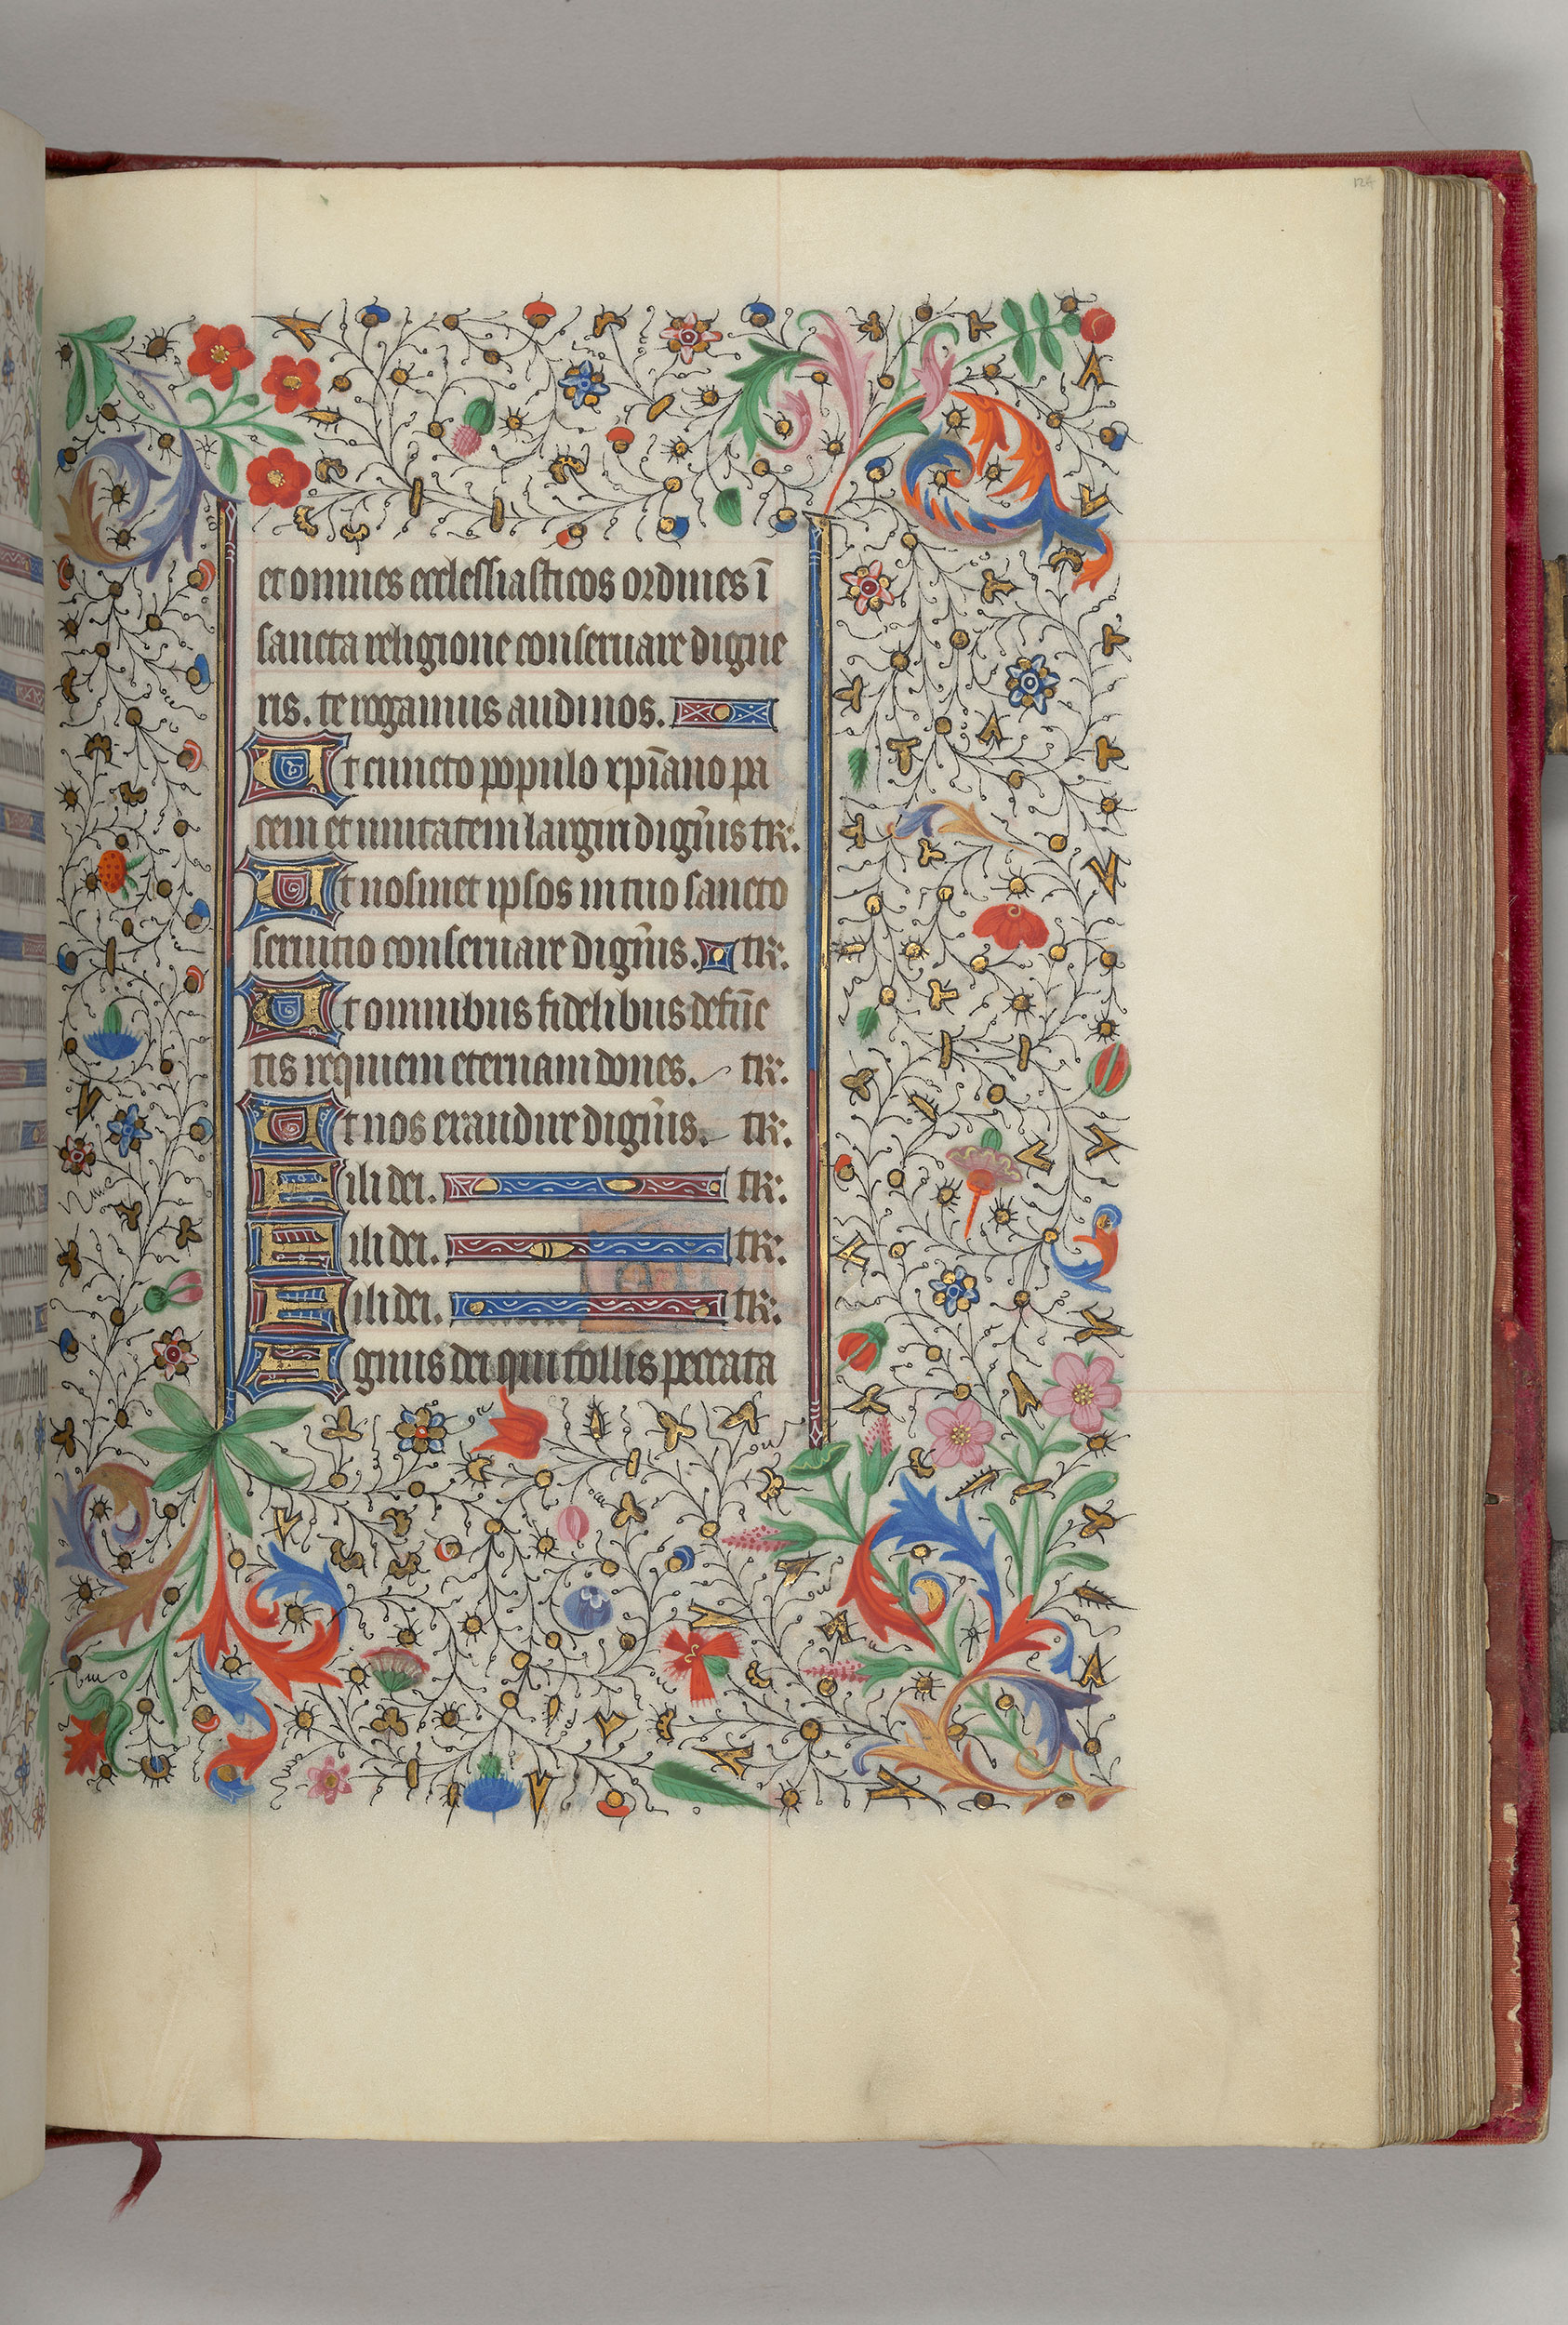 124
et omnes ecclessiasticos ordines ī
sancta religione conseruare digne
ris. te rogamus audi nos.
Ut cuncto populo xp̄iano pa
cem et unitatem largiri dign̄is te R:
Ut nosmet ipsos in tuo sancto
seruitio conseruare dign̄is. te R:
Ut omnibus fidelibus defūc
tis requiem eternam dones. te R:
Ut nos exaudire dign̄is. te R:
Fili dei. te R:
Fili dei. te R:
Fili dei. te R:
Agnus dei qui tollis peccata